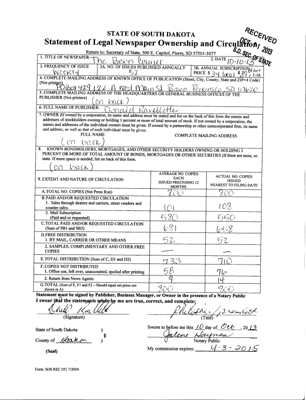 STATE OF SOUTH DAKOTA
Statement of Legal Newspaper Ownership and Circulation
RECEIVED
Return to: Secretary of State, 500 E. Capitol, Pierre, SD 57501-5077
1. TITLE OF NEWSPAPER The Bison Courier
2. DATE 10-10-13
3. FREQUENCY OF ISSUE
Weekly
3A. NO. OF ISSUES PUBLISHED ANNUALLY
52
3B. ANNUAL SUBSCRIPTION
PRICE $
4. COMPLETE MAILING ADDRESS OF KNOWN OFFICE OF PUBLICATION (Street, City, County, State and ZIP+4 Code)
(Not printers)
Main St Bison
5. COMPLETE MAILING ADDRESS OF THE HEADQUARTERS OF GENERAL BUSINESS OFFICE OF THE
PUBLISHER (Not printers)
(on back)
6. FULL NAME OF PUBLISHER
Ravellette
7. OWNER (If owned by a corporation, its name and address must be stated and list on the back of this form the names and
addresses of stockholders owning or holding 1 percent or more of total amount of stock. If not owned by a corporation, the
names and addresses of the individual owners must be given. If owned by a partnership or other unincorporated firm, its name
and address, as well as that of each individual must be given.
FULL NAME
COMPLETE MAILING ADDRESS
(on back)
8. KNOWN BONDHOLDERS, MORTGAGEES, AND OTHER SECURITY HOLDERS OWNING OR HOLDING 1
PERCENT OR MORE OF TOTAL AMOUNT OF BONDS, MORTGAGES OR OTHER SECURITIES (If there are none, so
state. If more space is needed, list on back of this form.
(on back)
9. EXTENT AND NATURE OF CIRCULATION
AVERAGE NO. COPIES
EACH
ISSUED PRECEDING 12
MONTHS
ACTUAL NO. COPIES
ISSUED
NEAREST TO FILING DATE
A. TOTAL NO. COPIES (Net Press Run)
800
800
B. PAID AND/OR REQUESTED CIRCULATION
1. Sales through dealers and carriers, street vendors and
counter sales.
101
108
2. Mail Subscription
(Paid and or requested)
580
550
C. TOTAL PAID AND/OR REQUESTED CIRCULATION
(Sum of 9B1 and 9B2)
681
658
D. FREE DISTRIBUTION
1. BY MAIL, CARRIER OR OTHER MEANS
52
52
2. SAMPLES, COMPLIMENTARY AND OTHER FREE
COPIES
E. TOTAL DISTRIBUTION (Sum of C, D1 and D2)
733
710
F. COPIES NOT DISTRIBUTED
1. Office use, left over, unaccounted, spoiled after printing
58
76
2. Return from News Agents
9
14
G. TOTAL (Sum of E, F1 and F2 – Should equal net press run
shown in A)
800
800
Statement must be signed by Publisher, Business Manager, or Owner in the presence of a Notary Public
I swear that the statements made by me are true, correct, and complete.
(Signature)
(Title)
State of South Dakota )
Sworn to before me this 10 day of Oct, 2013
County of Haakon )
Notary Public
(Seal)
My commission expires: 4-3-2015
Form. SOS REC 051 7/2004